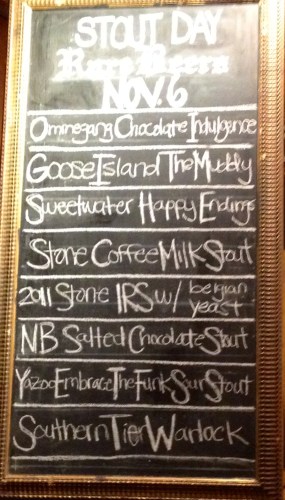 STOUT DAY
Rare Beers
NOV. 6
Ommegang Chocolate Indulgence
Goose Island The Muddy
Sweetwater Happy Ending
Stone Coffee Milk Stout
2011 Stone IRS w/ belgian yeast
NB Salted Chocolate Stout
Yazoo Embrace The Funk Sour Stout
Southern Tier Warlock